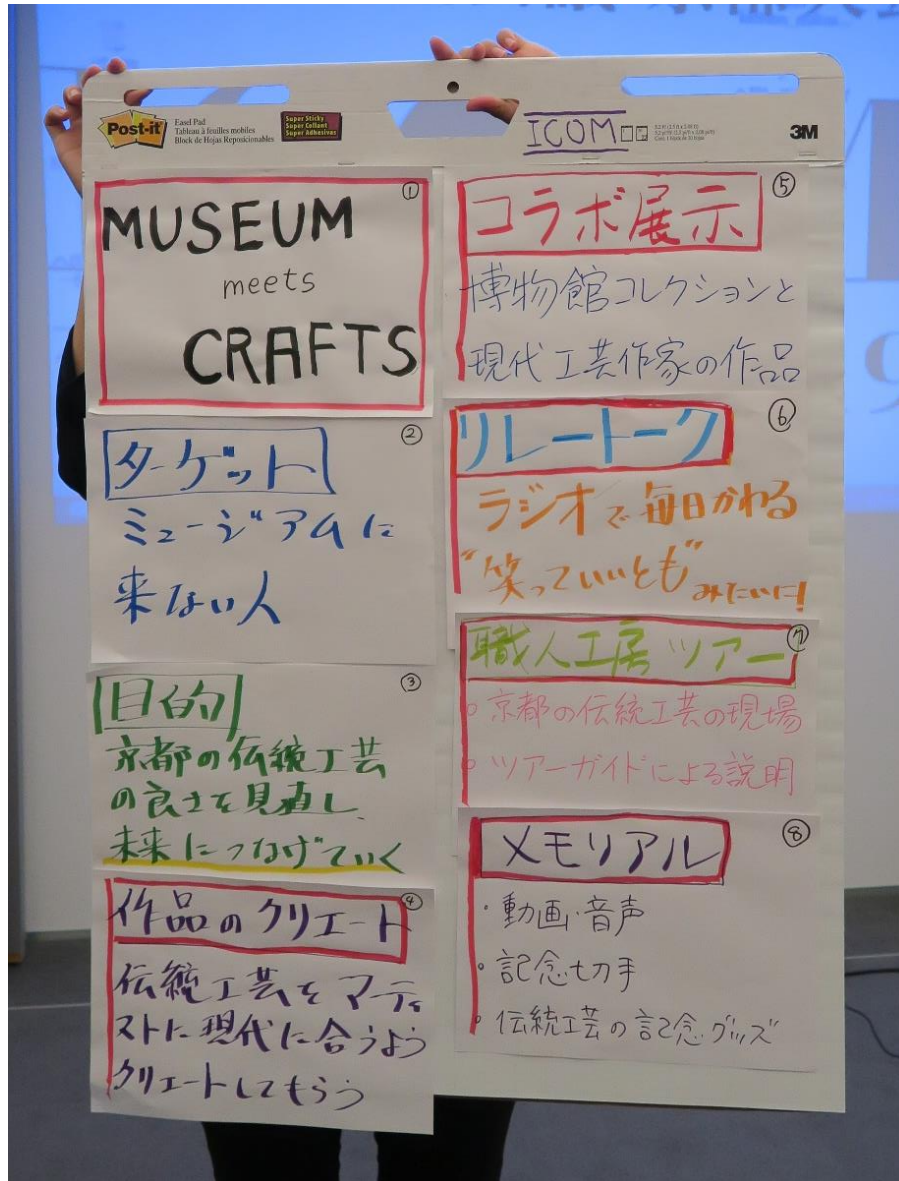 Post-it
Easel Pad
Tableau à feuilles mobiles
Block de Hojas Reposicionables
Super Sticky
Super Collant
Super Adhesivas
ICOM
3M
①
MUSEUM
meets
CRAFTS
②
ターゲット
ミュージアムに
来ない人
③
目的
京都の伝統工芸
の良さを見直し、
未来につなげていく
④
作品のクリエート
伝統工芸をアーティ
ストに現代に合うよう
クリエートしてもらう
⑤
コラボ展示
博物館コレクションと
現代工芸作家の作品
⑥
リレートーク
ラジオで毎日かわる
"笑っていいとも"みたいに!
⑦
職人工房ツアー
・京都の伝統工芸の現場
・ツアーガイドによる説明
⑧
メモリアル
・動画・音声
・記念切手
・伝統工芸の記念グッズ